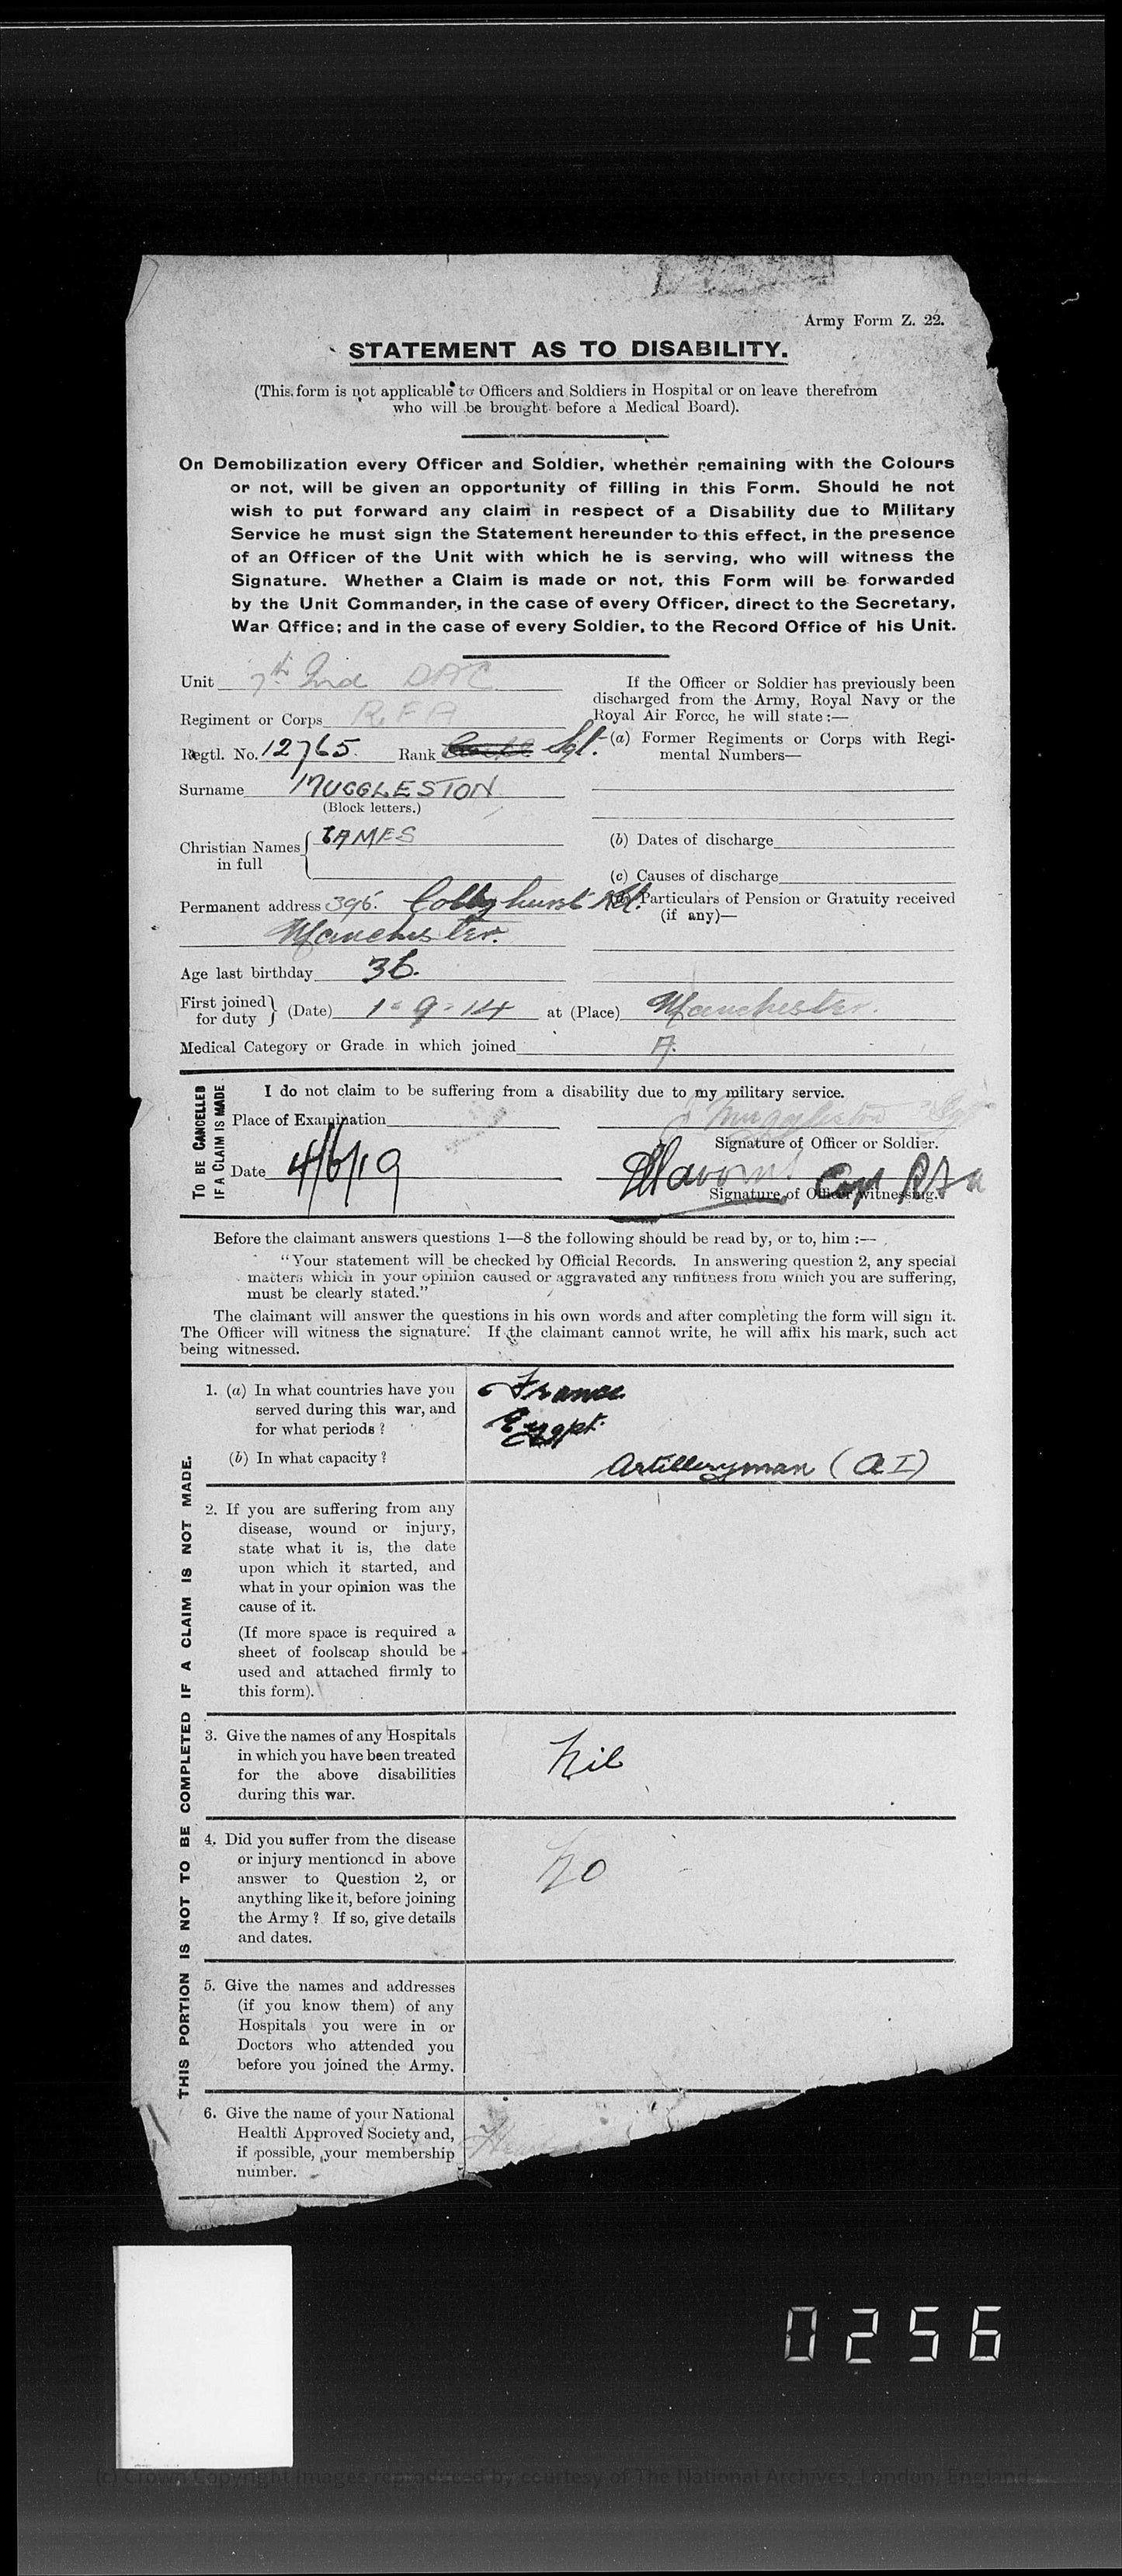 Army Form Z. 22.
STATEMENT AS TO DISABILITY.
(This form is not applicable to Officers and Soldiers in Hospital or on leave therefrom
who will be brought before a Medical Board).
On Demobilization every Officer and Soldier, whether remaining with the Colours
or not, will be given an opportunity of filling in this Form. Should he not
wish to put forward any claim in respect of a Disability due to Military
Service he must sign the Statement hereunder to this effect, in the presence
of an Officer of the Unit with which he is serving, who will witness the
Signature. Whether a Claim is made or not, this Form will be forwarded
by the Unit Commander, in the case of every Officer, direct to the Secretary,
War Office; and in the case of every Soldier, to the Record Office of his Unit.
Unit 7th Ind DAC
Regiment or Corps R.F.A
Regtl. No. 12765. Rank Sgt.
Surname MUGGLESTON
(Block letters.)
Christian Names in full JAMES
Permanent address 396. Collyhurst Rd.
Manchester.
Age last birthday 36.
If the Officer or Soldier has previously been
discharged from the Army, Royal Navy or the
Royal Air Force, he will state:—
(a) Former Regiments or Corps with Regi-
mental Numbers—
(b) Dates of discharge
(c) Causes of discharge
(d) Particulars of Pension or Gratuity received
(if any)—
First joined for duty (Date) 1-9-14 at (Place) Manchester.
Medical Category or Grade in which joined A.
TO BE CANCELLED
IF A CLAIM IS MADE
I do not claim to be suffering from a disability due to my military service.
Place of Examination
J Muggleston Sgt
Signature of Officer or Soldier.
Date 4/6/19
Capt RFA
Signature of Officer witnessing.
Before the claimant answers questions 1—8 the following should be read by, or to, him :—
"Your statement will be checked by Official Records. In answering question 2, any special
matters which in your opinion caused or aggravated any unfitness from which you are suffering,
must be clearly stated."
The claimant will answer the questions in his own words and after completing the form will sign it.
The Officer will witness the signature. If the claimant cannot write, he will affix his mark, such act
being witnessed.
THIS PORTION IS NOT TO BE COMPLETED IF A CLAIM IS NOT MADE.
1. (a) In what countries have you
served during this war, and
for what periods ?
France
Egypt.
(b) In what capacity ?
Artilleryman (A I)
2. If you are suffering from any
disease, wound or injury,
state what it is, the date
upon which it started, and
what in your opinion was the
cause of it.
(If more space is required a
sheet of foolscap should be
used and attached firmly to
this form).
3. Give the names of any Hospitals
in which you have been treated
for the above disabilities
during this war.
Nil
4. Did you suffer from the disease
or injury mentioned in above
answer to Question 2, or
anything like it, before joining
the Army ? If so, give details
and dates.
No
5. Give the names and addresses
(if you know them) of any
Hospitals you were in or
Doctors who attended you
before you joined the Army.
6. Give the name of your National
Health Approved Society and,
if possible, your membership
number.
0256
(c) Crown Copyright Images reproduced by courtesy of The National Archives, London, England.